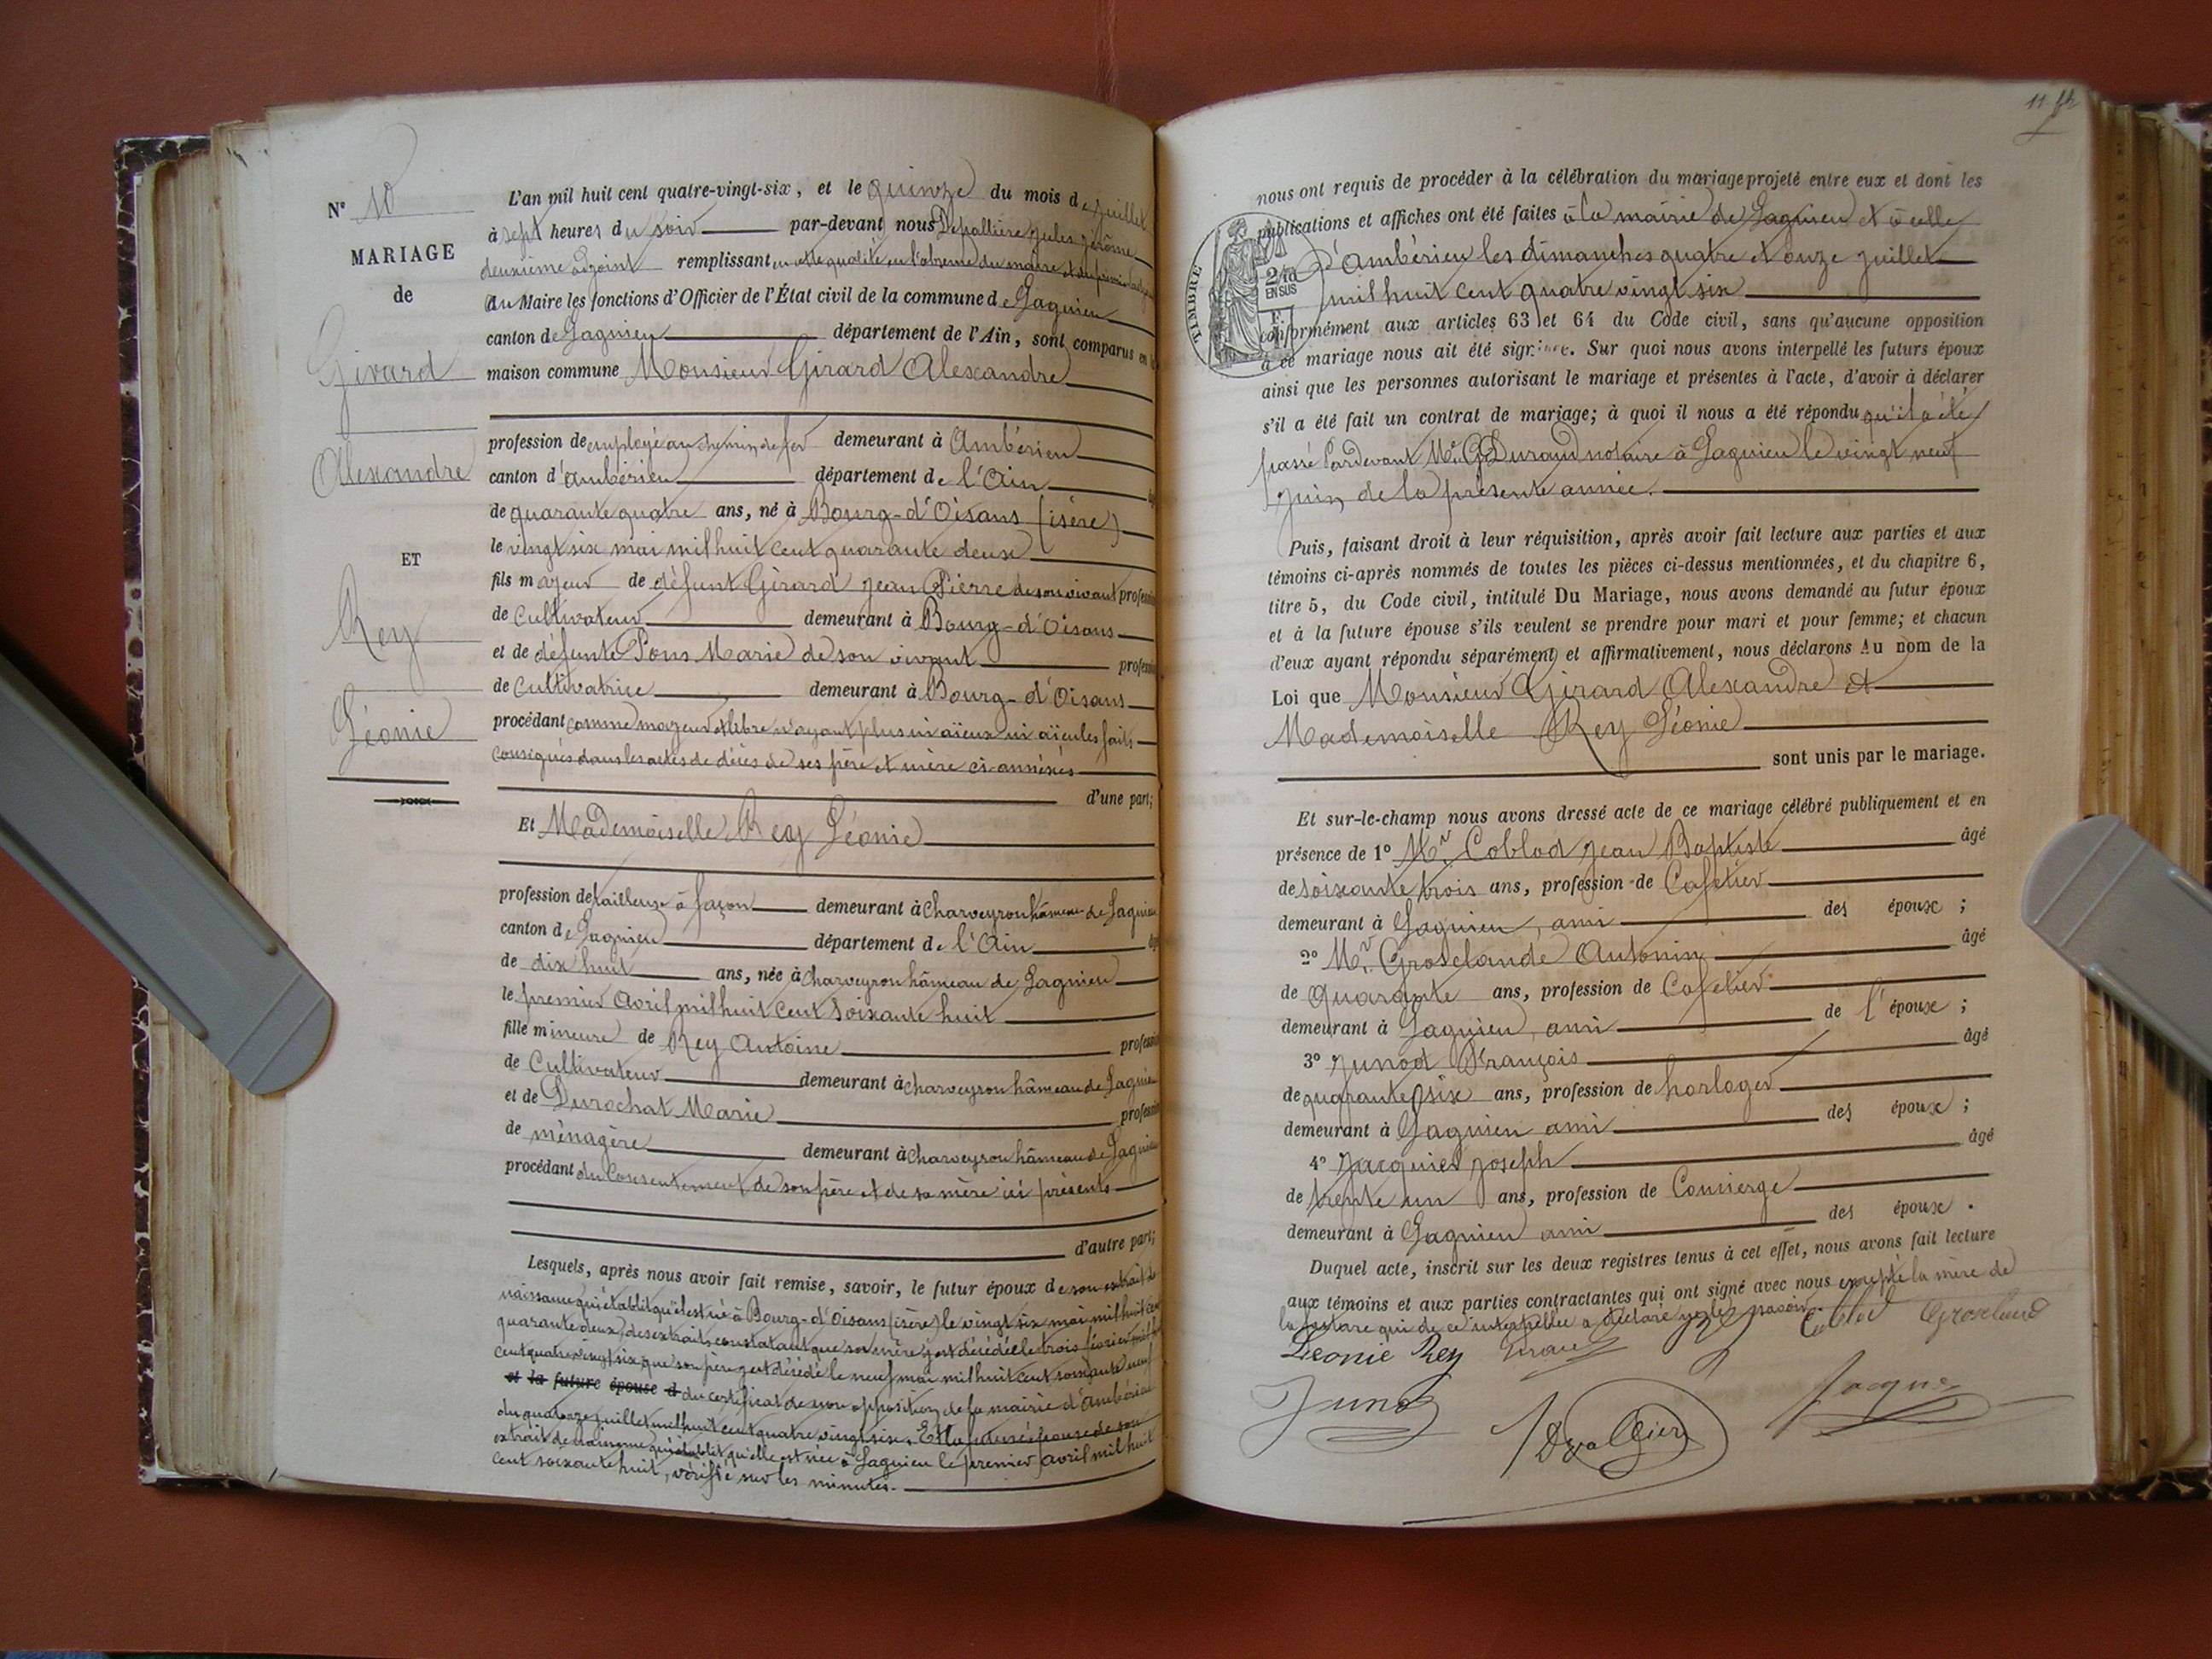 N° 10
MARIAGE
de
Girard
Alexandre
ET
Rey
Léonie
L'an mil huit cent quatre-vingt-six, et le quinze du mois de juillet
à sept heures du soir par-devant nous Depallière Jules Jérôme
deuxième adjoint remplissant en cette qualité en l'absence du maire et du premier adjoint
du Maire les fonctions d'Officier de l'État civil de la commune de Lagnieu
canton de Lagnieu département de l'Ain, sont comparus en la
maison commune Monsieur Girard Alexandre
profession de employé au chemin de fer demeurant à Ambérieu
canton d'ambérieu département de l'Ain
de quarante quatre ans, né à Bourg-d'Oisans (isère)
le vingt six mai mil huit cent quarante deux
fils majeur de défunt Girard Jean Pierre de son vivant profession
de Cultivateur demeurant à Bourg-d'Oisans
et de défunte Pons Marie de son vivant profession
de Cultivatrice demeurant à Bourg-d'Oisans
procédant comme majeur et libre n'ayant plus ni aïeux ni aïeules faits
consignés dans les actes de décès de ses père et mère ci-annexés
d'une part;
Et Mademoiselle Rey Léonie
profession de tailleuse à façon demeurant à Charveyron hâmeau de Lagnieu
canton de Lagnieu département de l'Ain
de dix huit ans, née à Charveyron hâmeau de Lagnieu
le premier Avril mil huit cent soixante huit
fille mineure de Rey Antoine profession
de Cultivateur demeurant à Charveyron hâmeau de Lagnieu
et de Durochat Marie profession
de ménagère demeurant à Charveyron hâmeau de Lagnieu
procédant du Consentement de son père et de sa mère ici présents
d'autre part;
Lesquels, après nous avoir fait remise, savoir, le futur époux de son extrait de
naissance qui établit qu'il est né à Bourg-d'Oisans (isère) le vingt six mai mil huit cent
quarante deux, des extraits constatant que sa mère y est décédée le trois février mil huit
cent quatre vingt six, que son père y est décédé le neuf mai mil huit cent soixante neuf
et la future épouse d du certificat de non opposition de la mairie d'Ambérieu
du quatorze juillet mil huit cent quatre vingt six. Et la future épouse de son
extrait de naissance qui établit qu'elle est née à Lagnieu le premier avril mil huit
cent soixante huit, vérifié sur les minutes.
11
TIMBRE
2/10
EN SUS
nous ont requis de procéder à la célébration du mariage projeté entre eux et dont les
publications et affiches ont été faites à la mairie de Lagnieu et à celle
d'Ambérieu les dimanches quatre et onze juillet
mil huit cent quatre vingt six
conformément aux articles 63 et 64 du Code civil, sans qu'aucune opposition
à ce mariage nous ait été signifiée. Sur quoi nous avons interpellé les futurs époux
ainsi que les personnes autorisant le mariage et présentes à l'acte, d'avoir à déclarer
s'il a été fait un contrat de mariage; à quoi il nous a été répondu qu'il a été
passé Pardevant Me Durand notaire à Lagnieu le vingt neuf
juin de la présente année.
Puis, faisant droit à leur réquisition, après avoir fait lecture aux parties et aux
témoins ci-après nommés de toutes les pièces ci-dessus mentionnées, et du chapitre 6,
titre 5, du Code civil, intitulé Du Mariage, nous avons demandé au futur époux
et à la future épouse s'ils veulent se prendre pour mari et pour femme; et chacun
d'eux ayant répondu séparément et affirmativement, nous déclarons Au nom de la
Loi que Monsieur Girard Alexandre et
Mademoiselle Rey Léonie
sont unis par le mariage.
Et sur-le-champ nous avons dressé acte de ce mariage célébré publiquement et en
présence de 1° Mr Coblod Jean Baptiste âgé
de soixante trois ans, profession de Cafetier
demeurant à Lagnieu, ami des époux;
2° Mr. Grosclaude Antonin âgé
de quarante ans, profession de Cafetier
demeurant à Lagnieu, ami de l'époux;
3° Junod François âgé
de quarante six ans, profession de horloger
demeurant à Lagnieu ami des époux;
4° Jacquier Joseph âgé
de trente un ans, profession de Concierge
demeurant à Lagnieu ami des époux.
Duquel acte, inscrit sur les deux registres tenus à cet effet, nous avons fait lecture
aux témoins et aux parties contractantes qui ont signé avec nous excepté la mère de
la future qui de ce interpellée a déclaré ne les savoir.
Coblod Grosclaude
Léonie Rey Girard Rey
Junod Jacquier